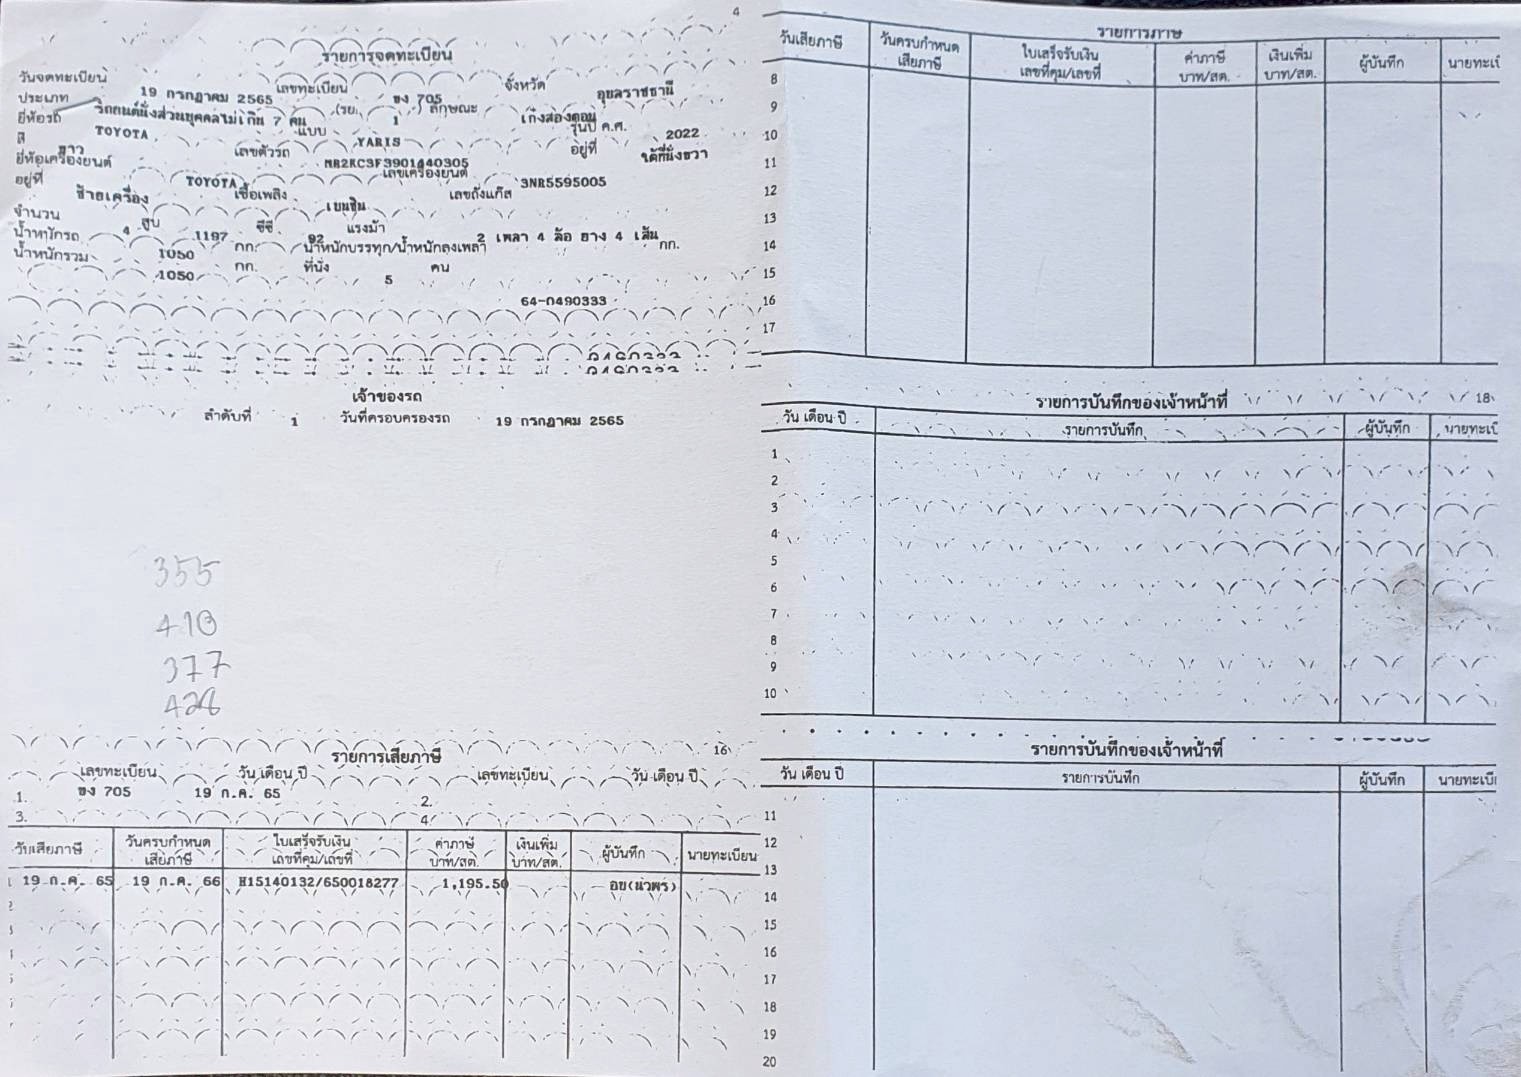 4
รายการจดทะเบียน
วันจดทะเบียน 19 กรกฎาคม 2565 เลขทะเบียน ขง 705 จังหวัด อุบลราชธานี
ประเภท รถยนต์นั่งส่วนบุคคลไม่เกิน 7 คน (รย. 1 ) ลักษณะ เก๋งสองตอน
ยี่ห้อรถ TOYOTA แบบ YARIS รุ่นปี ค.ศ. 2022
สี ขาว เลขตัวรถ MR2KC3F3901440305 อยู่ที่ ใต้ที่นั่งขวา
ยี่ห้อเครื่องยนต์ TOYOTA เลขเครื่องยนต์ 3NR5595005
อยู่ที่ ซ้ายเครื่อง เชื้อเพลิง เบนซิน เลขถังแก๊ส
จำนวน 4 สูบ 1197 ซีซี 92 แรงม้า 2 เพลา 4 ล้อ ยาง 4 เส้น
น้ำหนักรถ 1050 กก. น้ำหนักบรรทุก/น้ำหนักลงเพลา กก.
น้ำหนักรวม 1050 กก. ที่นั่ง 5 คน
64-0490333
เจ้าของรถ
ลำดับที่ 1 วันที่ครอบครองรถ 19 กรกฎาคม 2565
355
410
377
428
รายการเสียภาษี 16
เลขทะเบียน วัน เดือน ปี เลขทะเบียน วัน เดือน ปี
1. ขง 705 19 ก.ค. 65 2.
3. 4.
วันเสียภาษี วันครบกำหนดเสียภาษี ใบเสร็จรับเงิน เลขที่คุม/เลขที่ ค่าภาษี บาท/สต. เงินเพิ่ม บาท/สต. ผู้บันทึก นายทะเบียน
1 19 ก.ค. 65 19 ก.ค. 66 H15140132/650018277 1,195.50 อบ(นวพร)
รายการภาษี
วันเสียภาษี วันครบกำหนดเสียภาษี ใบเสร็จรับเงิน เลขที่คุม/เลขที่ ค่าภาษี บาท/สต. เงินเพิ่ม บาท/สต. ผู้บันทึก นายทะเบี
8
9
10
11
12
13
14
15
16
17
รายการบันทึกของเจ้าหน้าที่ 18
วัน เดือน ปี รายการบันทึก ผู้บันทึก นายทะเบี
1
2
3
4
5
6
7
8
9
10
รายการบันทึกของเจ้าหน้าที่
วัน เดือน ปี รายการบันทึก ผู้บันทึก นายทะเบี
11
12
13
14
15
16
17
18
19
20